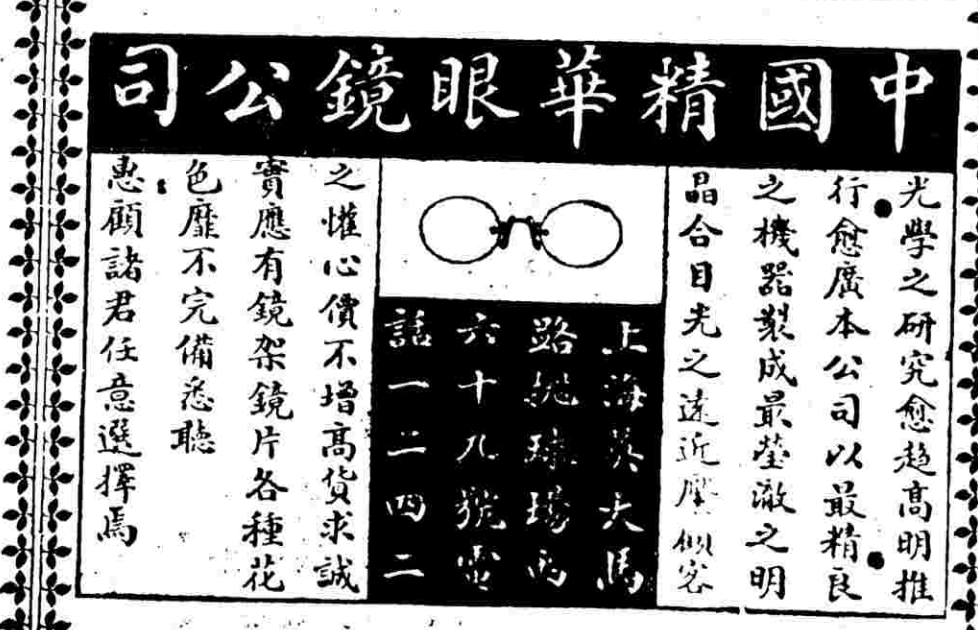 中國精華眼鏡公司
光學之研究愈趨高明推
行愈廣本公司以最精良
之機器製成最瑩澈之明
晶合目光之遠近壓倒客
上海英大馬
路拋球場西
六十八號電
話一二四二
之懽心價不增高貨求誠
實應有鏡架鏡片各種花
色靡不完備悉聽
惠顧諸君任意選擇焉